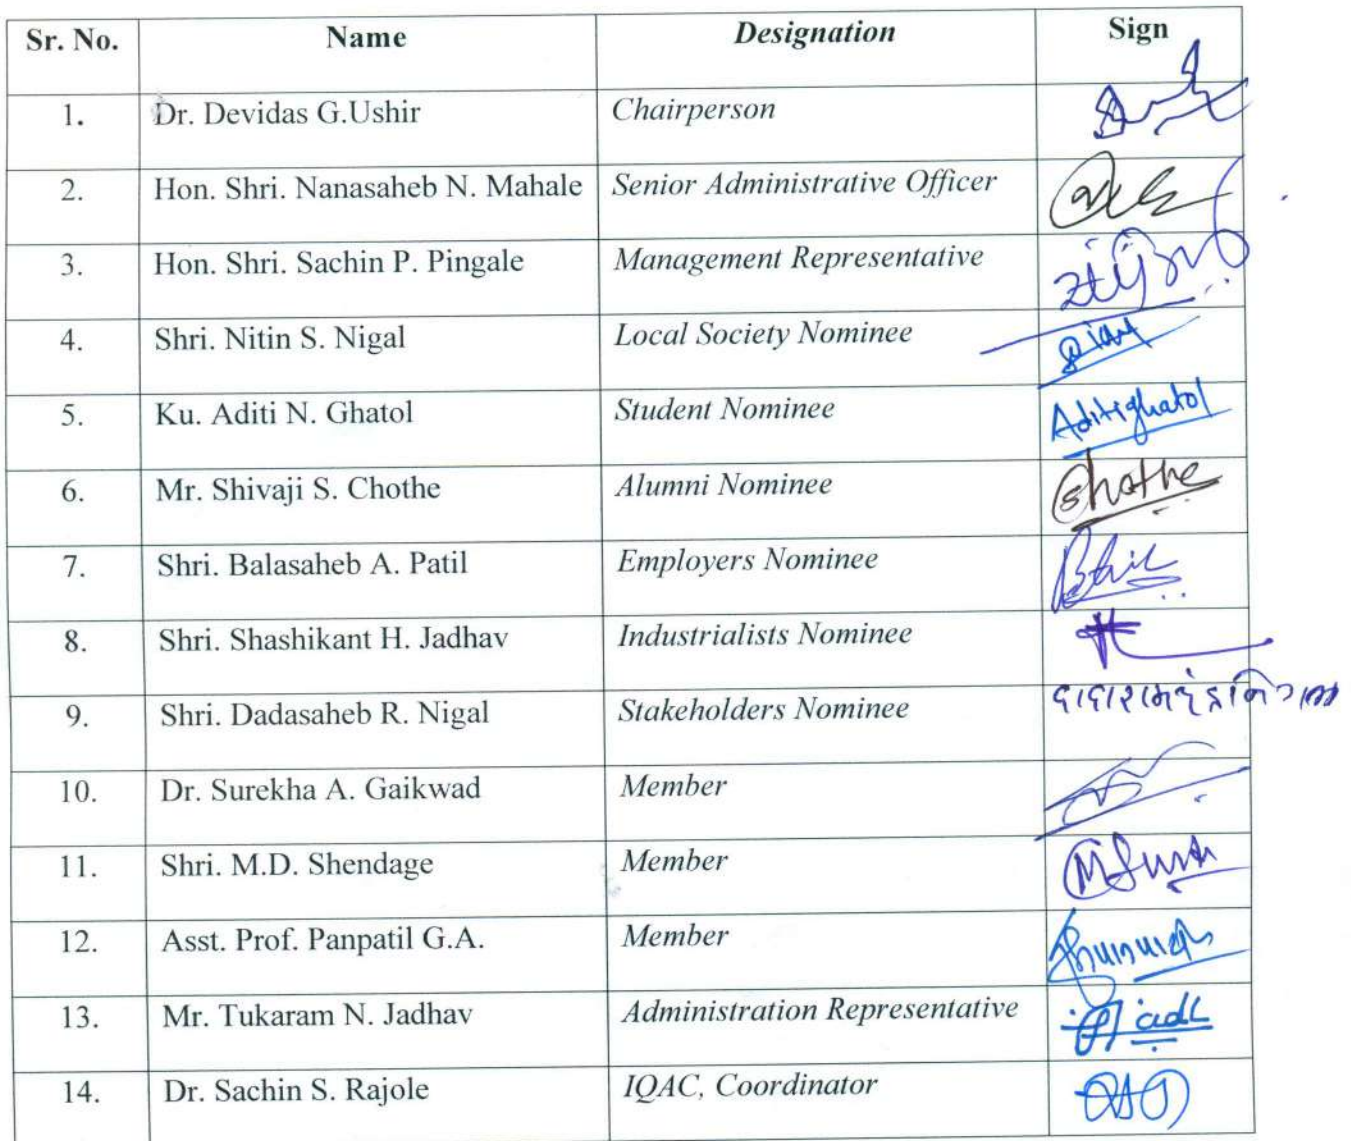 Sr. No. Name Designation Sign
1. Dr. Devidas G.Ushir Chairperson
2. Hon. Shri. Nanasaheb N. Mahale Senior Administrative Officer
3. Hon. Shri. Sachin P. Pingale Management Representative
4. Shri. Nitin S. Nigal Local Society Nominee
5. Ku. Aditi N. Ghatol Student Nominee Aditighatol
6. Mr. Shivaji S. Chothe Alumni Nominee Chothe
7. Shri. Balasaheb A. Patil Employers Nominee
8. Shri. Shashikant H. Jadhav Industrialists Nominee
9. Shri. Dadasaheb R. Nigal Stakeholders Nominee
10. Dr. Surekha A. Gaikwad Member
11. Shri. M.D. Shendage Member
12. Asst. Prof. Panpatil G.A. Member
13. Mr. Tukaram N. Jadhav Administration Representative
14. Dr. Sachin S. Rajole IQAC, Coordinator